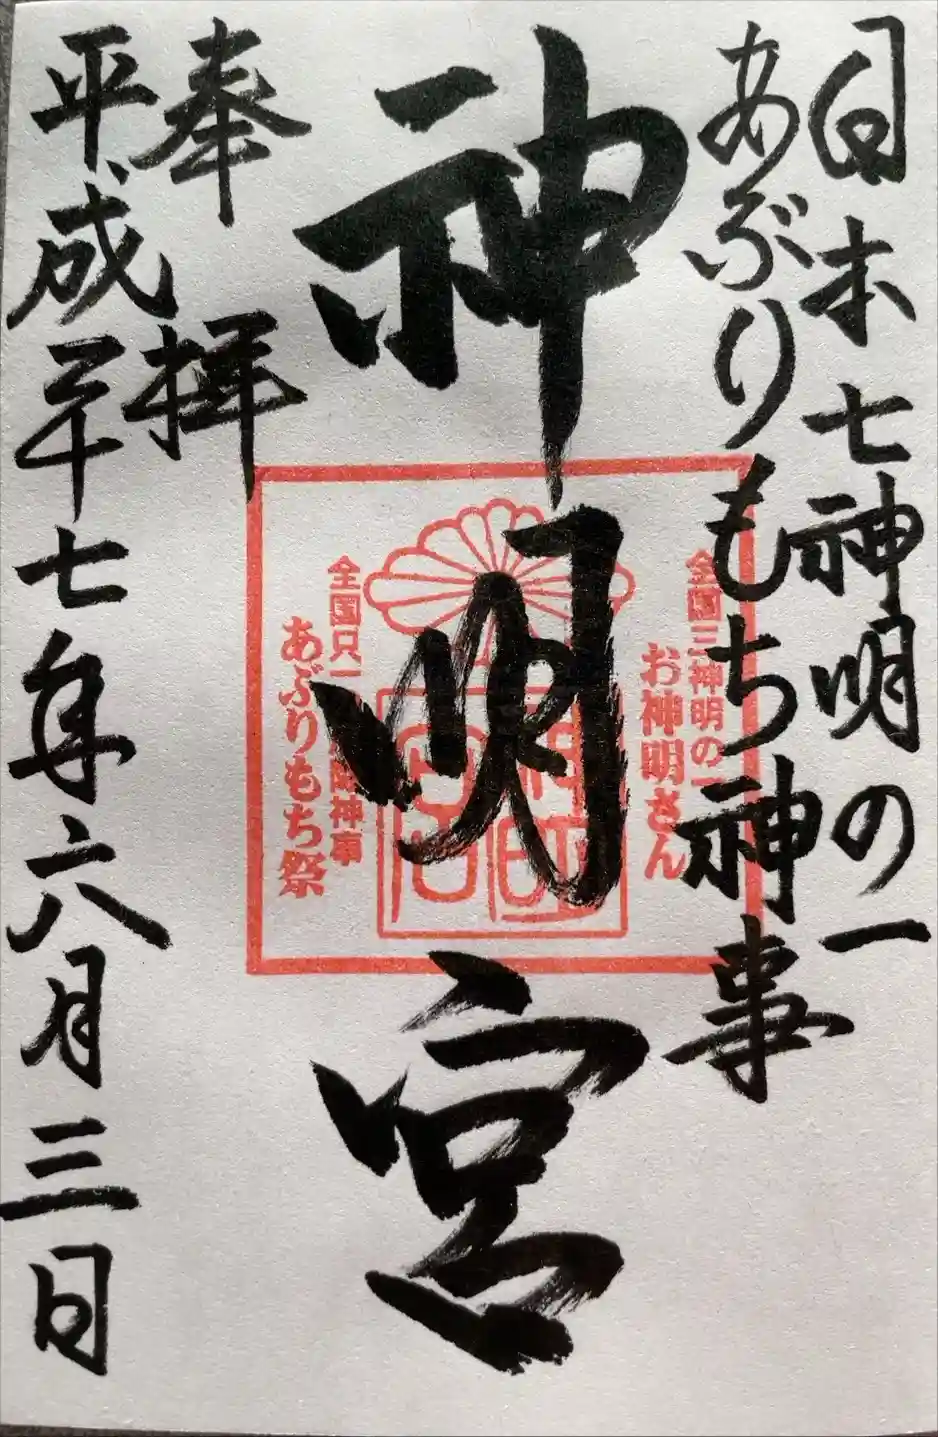 日本七神明の一
あぶりもち神事
神明宮
奉拝
平成二十七年六月三日
全国三神明の一
お神明さん
全国只一
神事
あぶりもち祭